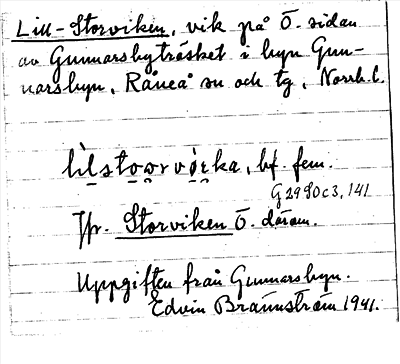 Lill-Storviken, vik på Ö. sidan
av Gunnarsbyträsket i byn Gun-
narsbyn, Råneå sn och tg, Norrb. l.
bf. fem.
G 2990 c 3, 141
Jfr. Storviken Ö. därom.
Uppgiften från Gunnarsbyn.
Edvin Brännström 1941.